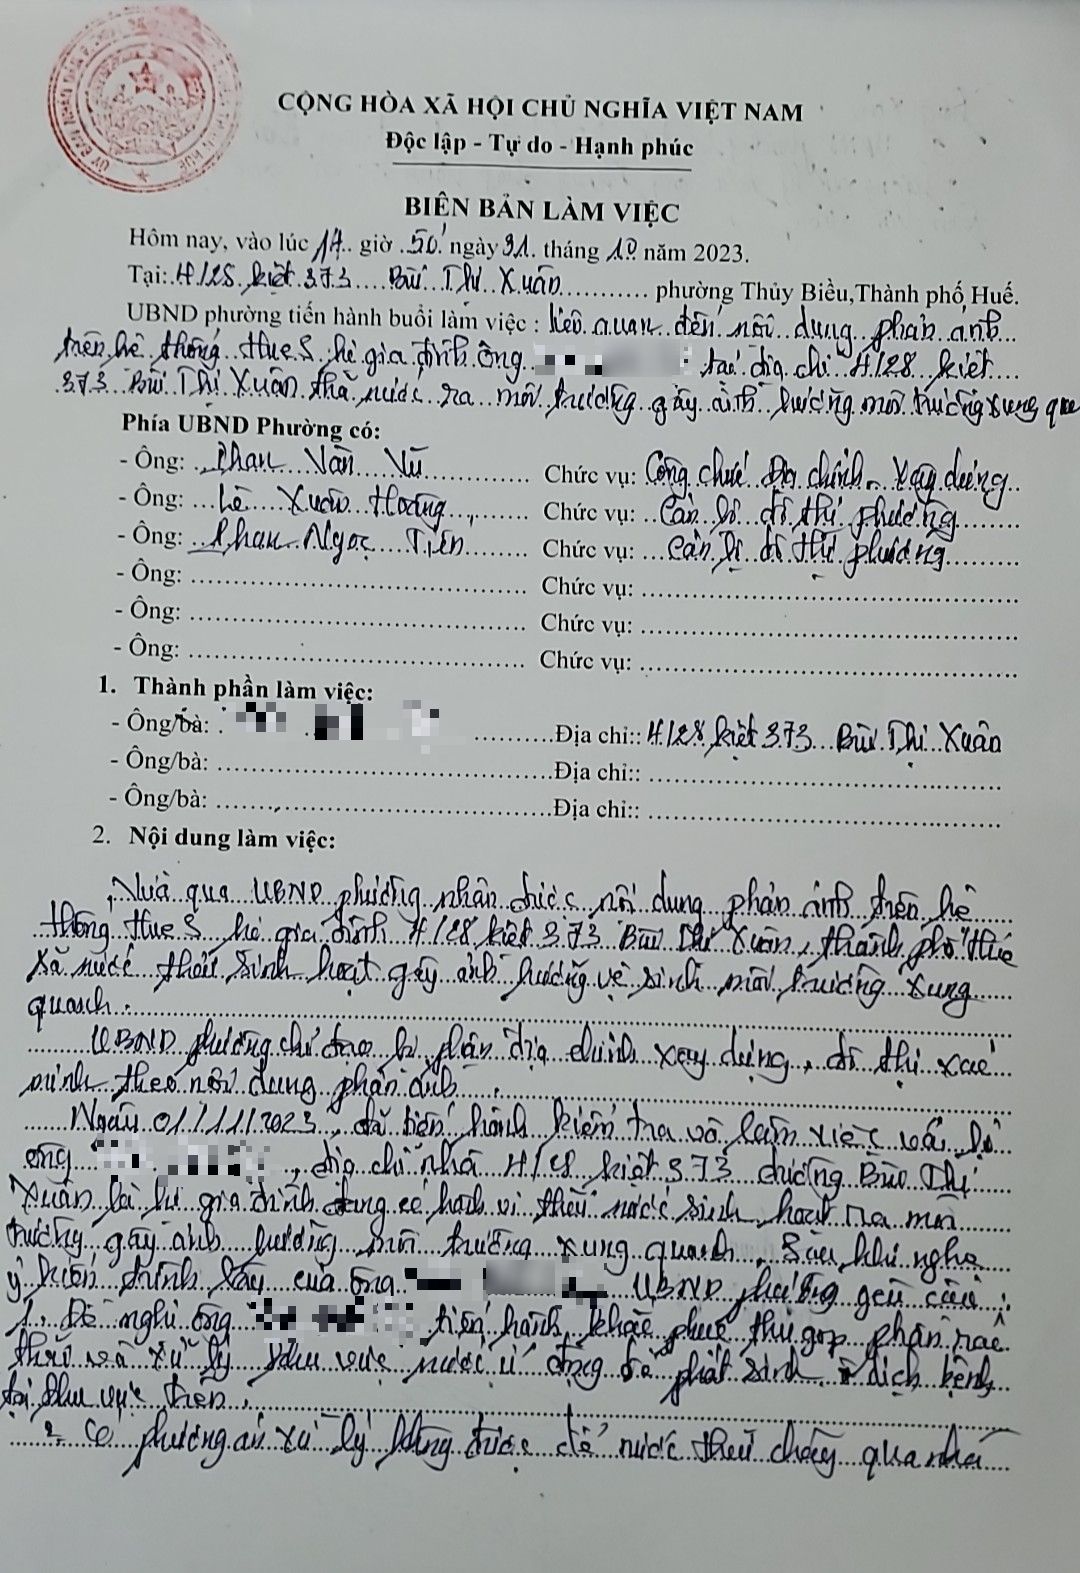 CỘNG HÒA XÃ HỘI CHỦ NGHĨA VIỆT NAM
Độc lập - Tự do - Hạnh phúc
BIÊN BẢN LÀM VIỆC
Hôm nay, vào lúc 14 giờ 50' ngày 31 tháng 10 năm 2023.
Tại: 4/28 kiệt 373 Bùi Thị Xuân phường Thủy Biều,Thành phố Huế.
UBND phường tiến hành buổi làm việc : liên quan đến nội dung phản ánh
trên hệ thống Hue S hộ gia đình ông tại địa chỉ 4/28 kiệt
373 Bùi Thị Xuân thả nước ra môi trường gây ảnh hưởng môi trường xung qua
Phía UBND Phường có:
- Ông: Phan Văn Vũ Chức vụ: Công chức Địa chính - Xây dựng
- Ông: Lê Xuân Hoàng Chức vụ: Cán bộ đô thị phường
- Ông: Phan Ngọc Tiến Chức vụ: Cán bộ đô thị phường
- Ông: Chức vụ:
- Ông: Chức vụ:
- Ông: Chức vụ:
1. Thành phần làm việc:
- Ông/bà: Địa chỉ:: 4/28 kiệt 373 Bùi Thị Xuân
- Ông/bà: Địa chỉ::
- Ông/bà: Địa chỉ::
2. Nội dung làm việc:
Vừa qua UBND phường nhận được nội dung phản ánh trên hệ
thống Hue S hộ gia đình 4/28 kiệt 373 Bùi Thị Xuân, thành phố Huế
xã nước thải sinh hoạt gây ảnh hưởng vệ sinh môi trường xung
quanh.
UBND phường chỉ đạo bộ phận địa chính xây dựng, đô thị xác
minh theo nội dung phản ánh.
Ngày 01/11/2023, đã tiến hành kiểm tra và làm việc với hộ
ông , địa chỉ nhà 4/28 kiệt 373 đường Bùi Thị
Xuân là hộ gia đình đang có hành vi thải nước sinh hoạt ra môi
trường, gây ảnh hưởng môi trường xung quanh. Sau khi nghe
ý kiến trình bày của ông UBND phường yêu cầu:
1. Đề nghị ông tiến hành khắc phục thu gop phần rác
thải và xử lý khu vực nước ứ đọng để phát sinh dịch bệnh
tại khu vực trên.
2. Có phương án xử lý không được để nước thải chảy qua nhà